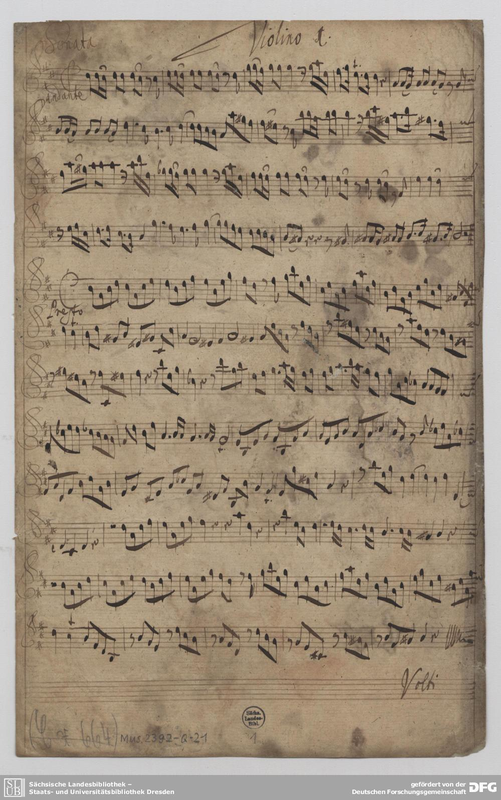 Sonata
Violino 1.
Andante
Presto
Volti
Mus. 2392-Q-21
1
Sächs.
Landes-
Bibl.
SLUB
Sächsische Landesbibliothek –
Staats- und Universitätsbibliothek Dresden
gefördert von der
Deutschen Forschungsgemeinschaft
DFG